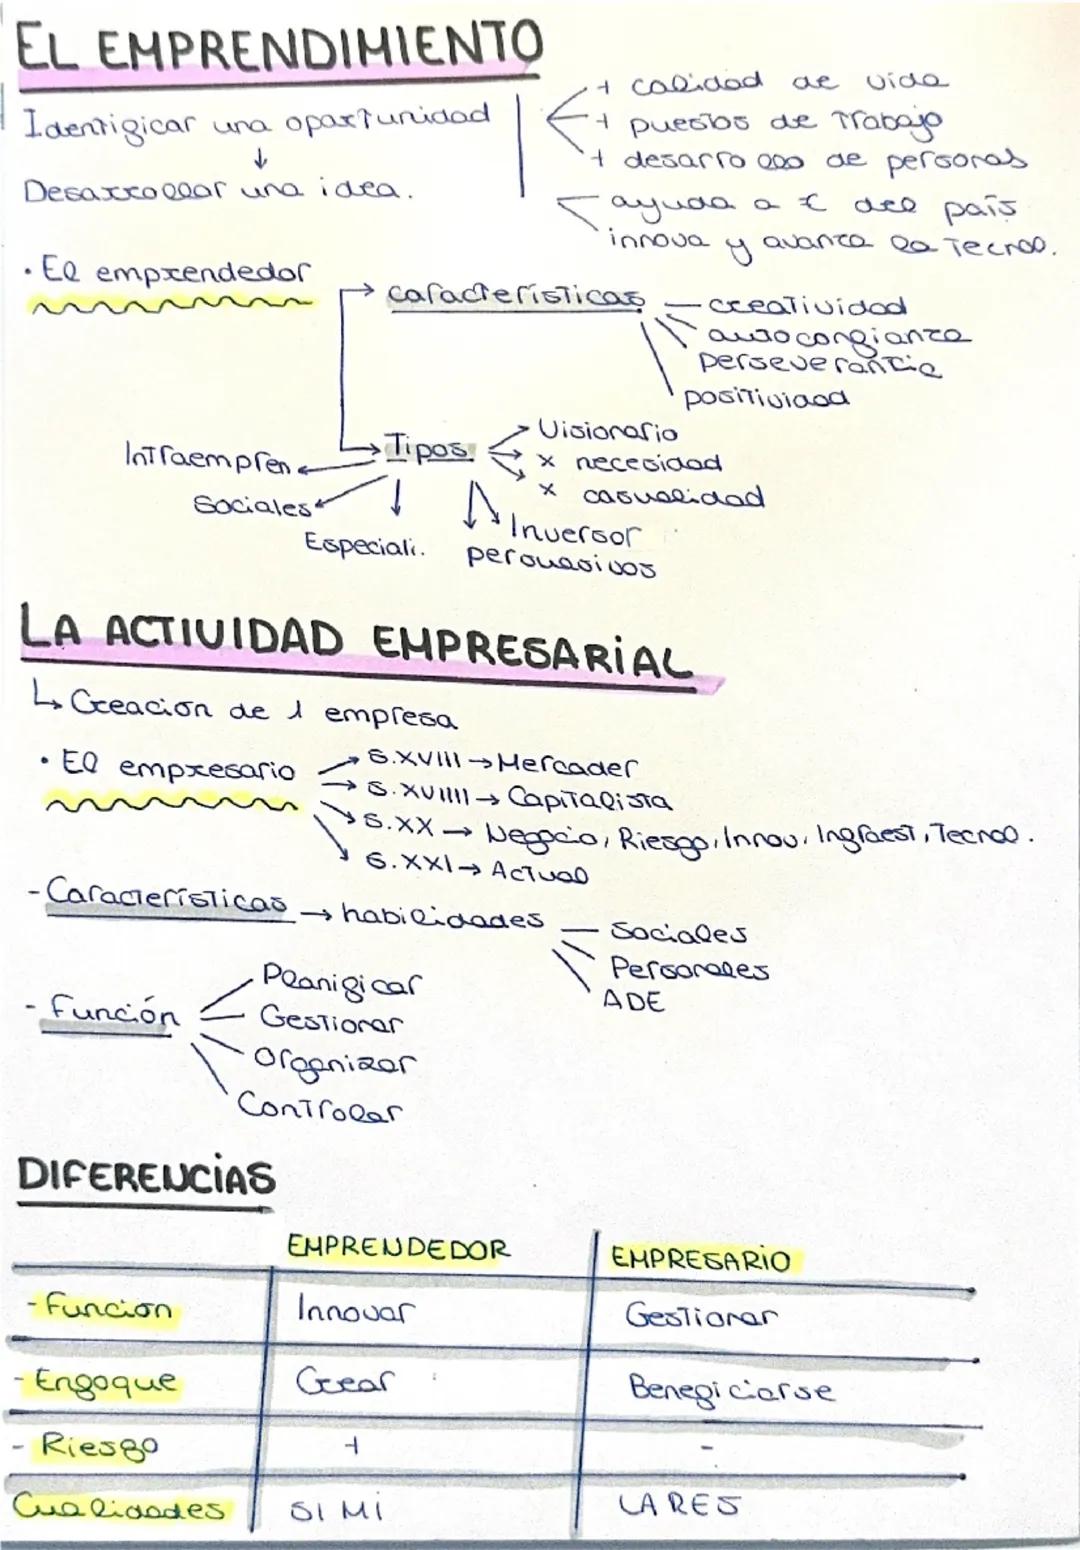 EL EMPRENDIMIENTO
Identificar una oportunidad
↓
Desarrollar una idea.
+ calidad de vida
+ puestos de Trabajo
+ desarrollo de personas
ayuda a € del país
innova y avanza la Tecnol.
· El emprendedor
características
creatividad
autoconfianza
perseverancia
positividad
Tipos
Visionario
x necesidad
x casualidad
Inversor
persuasivos
Especiali.
Sociales
Intraempren
LA ACTIVIDAD EMPRESARIAL
↳ Creacion de 1 empresa
· El empresario
S.XVIII → Mercader
S.XVIIII → Capitalista
S.XX → Negocio, Riesgo, Innov, Ingraest, Tecnol.
S.XXI → Actual
- Características → habilidades
Sociales
Personales
ADE
- Función
Planificar
Gestionar
Organizar
Controlar
DIFERENCIAS
EMPRENDEDOR EMPRESARIO
- Funcion Innovar Gestionar
- Enfoque Crear Beneficiarse
- Riesgo + -
Cualidades SI MI LA RES